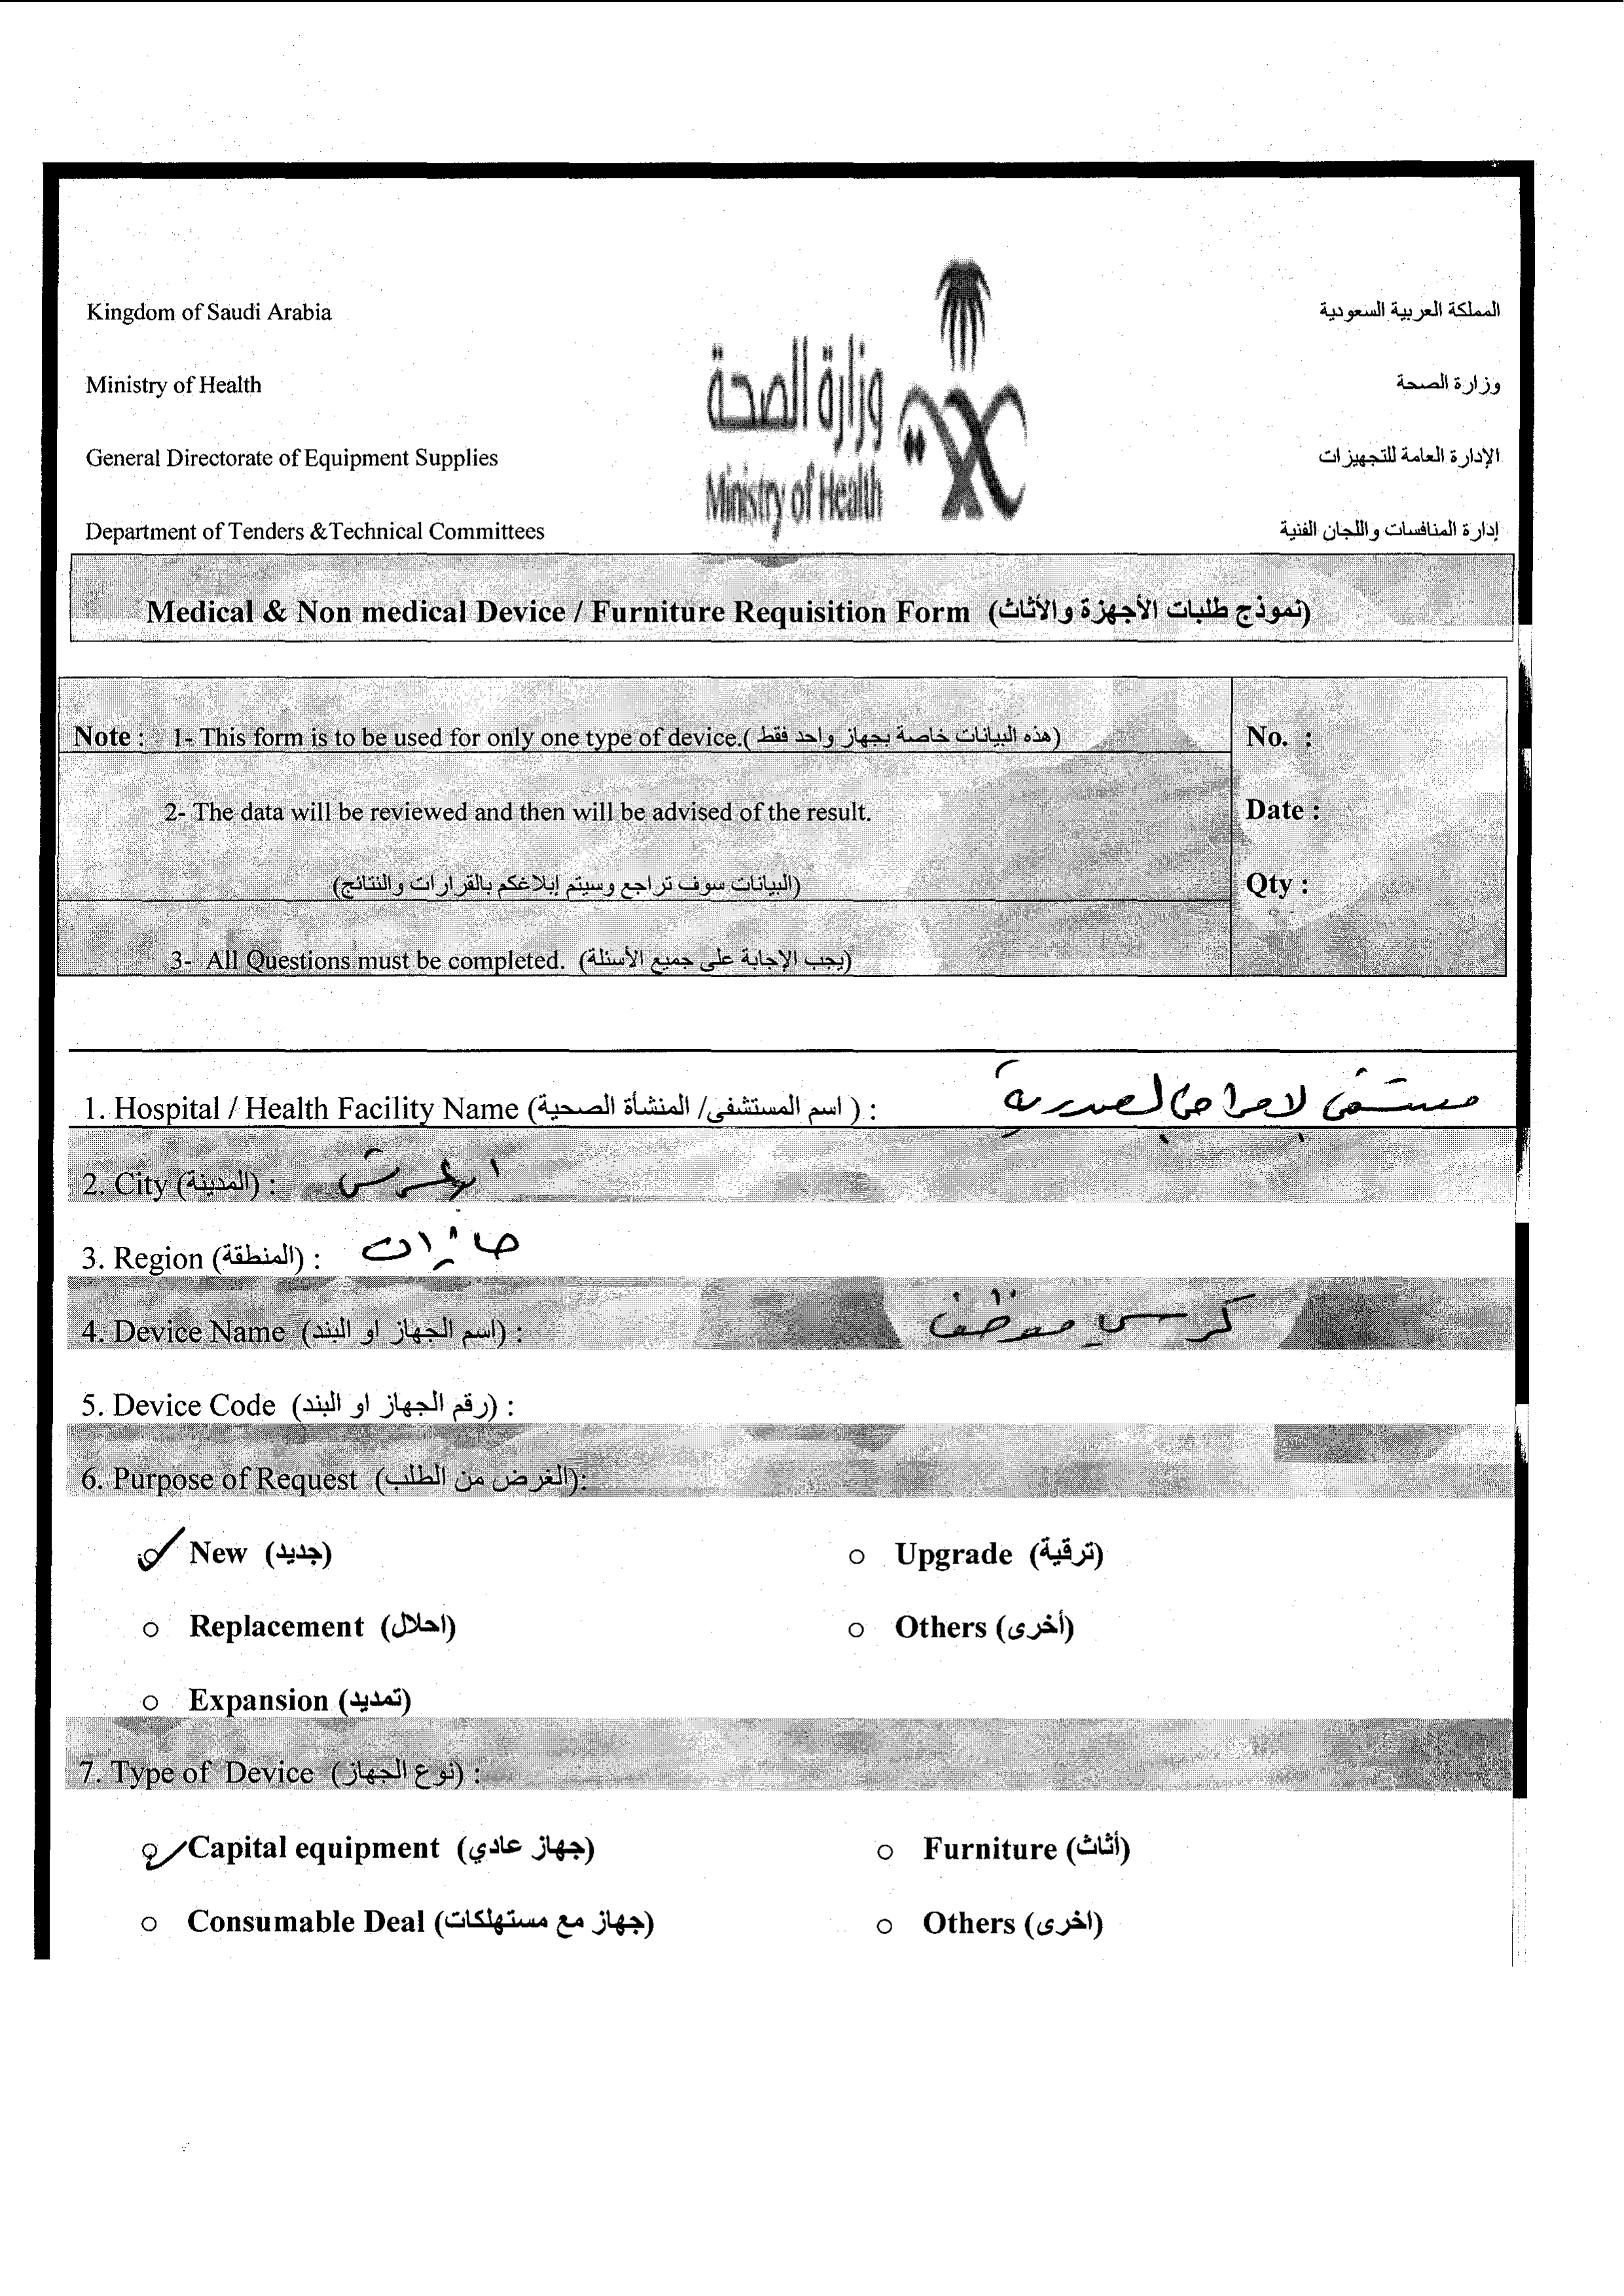 Kingdom of Saudi Arabia
المملكة العربية السعودية
Ministry of Health
وزارة الصحة
General Directorate of Equipment Supplies
الإدارة العامة للتجهيزات
Department of Tenders &Technical Committees
إدارة المنافسات واللجان الفنية
وزارة الصحة
Ministry of Health
Medical & Non medical Device / Furniture Requisition Form (نموذج طلبات الأجهزة والأثاث)
Note : 1- This form is to be used for only one type of device.( هذه البيانات خاصة بجهاز واحد فقط)
2- The data will be reviewed and then will be advised of the result.
(البيانات سوف تراجع وسيتم إبلاغكم بالقرارات والنتائج)
3- All Questions must be completed. (يجب الإجابة على جميع الأسئلة)
No. :
Date :
Qty :
1. Hospital / Health Facility Name (اسم المستشفى/ المنشأة الصحية ) : مستشفى الصدرية
2. City (المدينة) :
3. Region (المنطقة) :
4. Device Name (اسم الجهاز او البند) : كرسي موظف
5. Device Code (رقم الجهاز او البند) :
6. Purpose of Request (الغرض من الطلب):
New (جديد)
Upgrade (ترقية)
Replacement (احلال)
Others (أخرى)
Expansion (تمديد)
7. Type of Device (نوع الجهاز) :
Capital equipment (جهاز عادي)
Furniture (أثاث)
Consumable Deal (جهاز مع مستهلكات)
Others (اخرى)